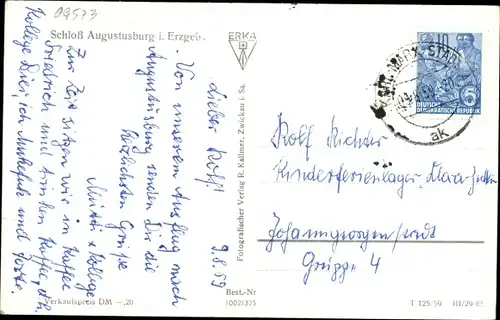 09573
Schloß Augustusburg i. Erzgeb.
ERKA
9.8.59
Lieber Rolf!
Von unserem Ausflug nach
Augustusburg senden Dir die
herzlichsten Grüße
Mutti + Kollege
Zur Zeit sitzen wir im Kaffee
Friedrich und trinken Kaffee, d.h.
Kollege Bier, ich Muckefuck und Torte.
Verkaufspreis DM -,20
Best.-Nr
10021375
Fotografischer Verlag R. Kallmer, Zwickau i. Sa.
KARL-MARX-STADT
ak
10
DEUTSCHE
DEMOKRATISCHE REPUBLIK
Rolf Richter
Kinderferienlager
Johanngeorgenstadt
Gruppe 4
T 125/59 III/29-65